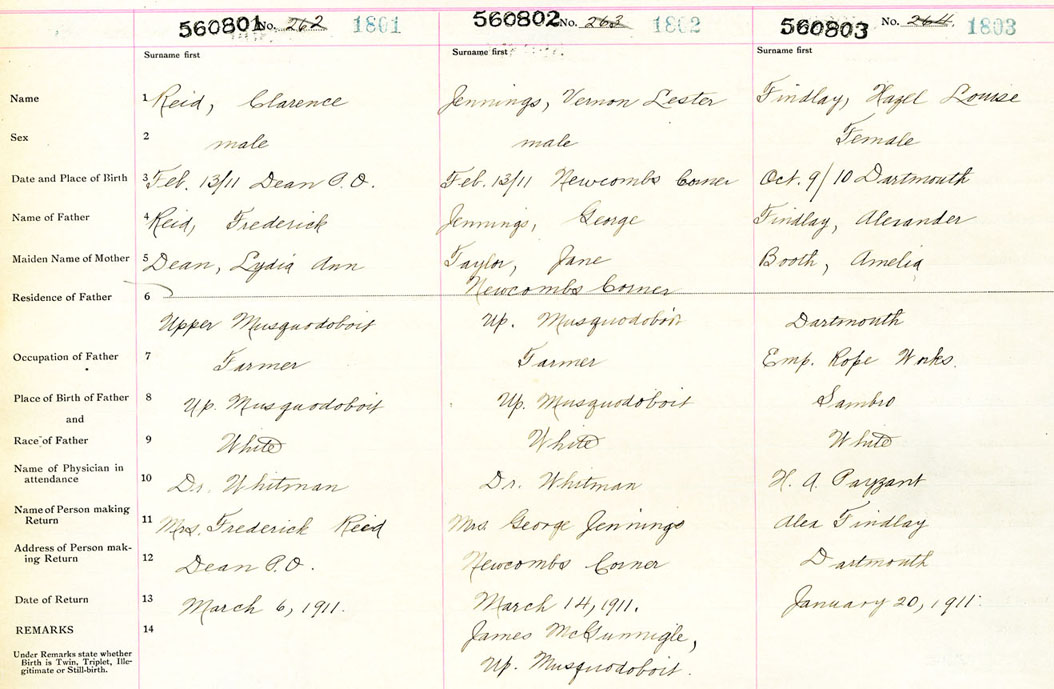 560801 No. 262 1801 560802 No. 263 1802 560803 No. 264 1803
Surname first Surname first Surname first
Name 1 Reid, Clarence Jennings, Vernon Lester Findlay, Hazel Louise
Sex 2 male male Female
Date and Place of Birth 3 Feb. 13/11 Dean P.O. Feb. 13/11 Newcombs Corner Oct. 9/10 Dartmouth
Name of Father 4 Reid, Frederick Jennings, George Findlay, Alexander
Maiden Name of Mother 5 Dean, Lydia Ann Taylor, Jane Booth, Amelia
Newcombs Corner
Residence of Father 6
Upper Musquodoboit Up. Musquodoboit Dartmouth
Occupation of Father 7 Farmer Farmer Emp. Rope Works.
Place of Birth of Father 8 Up. Musquodoboit Up. Musquodoboit Sambro
and
Race of Father 9 White White White
Name of Physician in
attendance 10 Dr. Whitman Dr. Whitman H. A. Payzant
Name of Person making
Return 11 Mrs. Frederick Reid Mrs. George Jennings Alex Findlay
Address of Person mak-
ing Return 12 Dean P.O. Newcombs Corner Dartmouth
Date of Return 13 March 6, 1911. March 14, 1911. January 20, 1911.
REMARKS 14 James McGunnigle,
Under Remarks state whether
Birth is Twin, Triplet, Ille-
gitimate or Still-birth. Up. Musquodoboit.